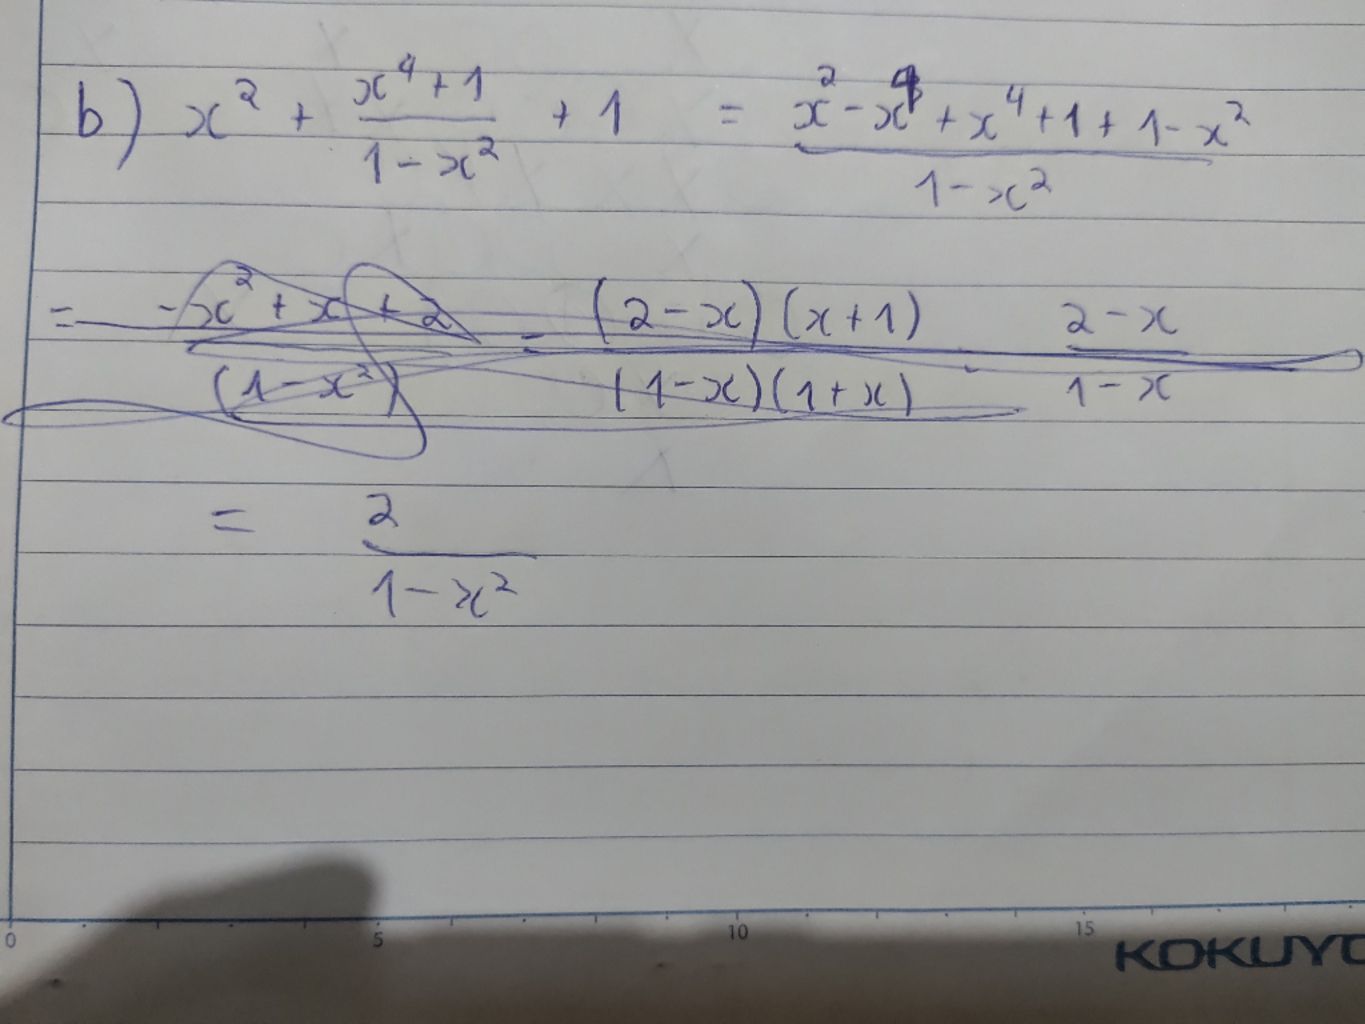 b) x² + (x⁴ + 1)/(1 - x²) + 1 = (x² - x⁴ + x⁴ + 1 + 1 - x²)/(1 - x²)
= (-x² + x + 2)/(1 - x²) = ((2 - x)(x + 1))/((1 - x)(1 + x)) (2 - x)/(1 - x)
= 2/(1 - x²)
0 5 10 15
KOKUYO